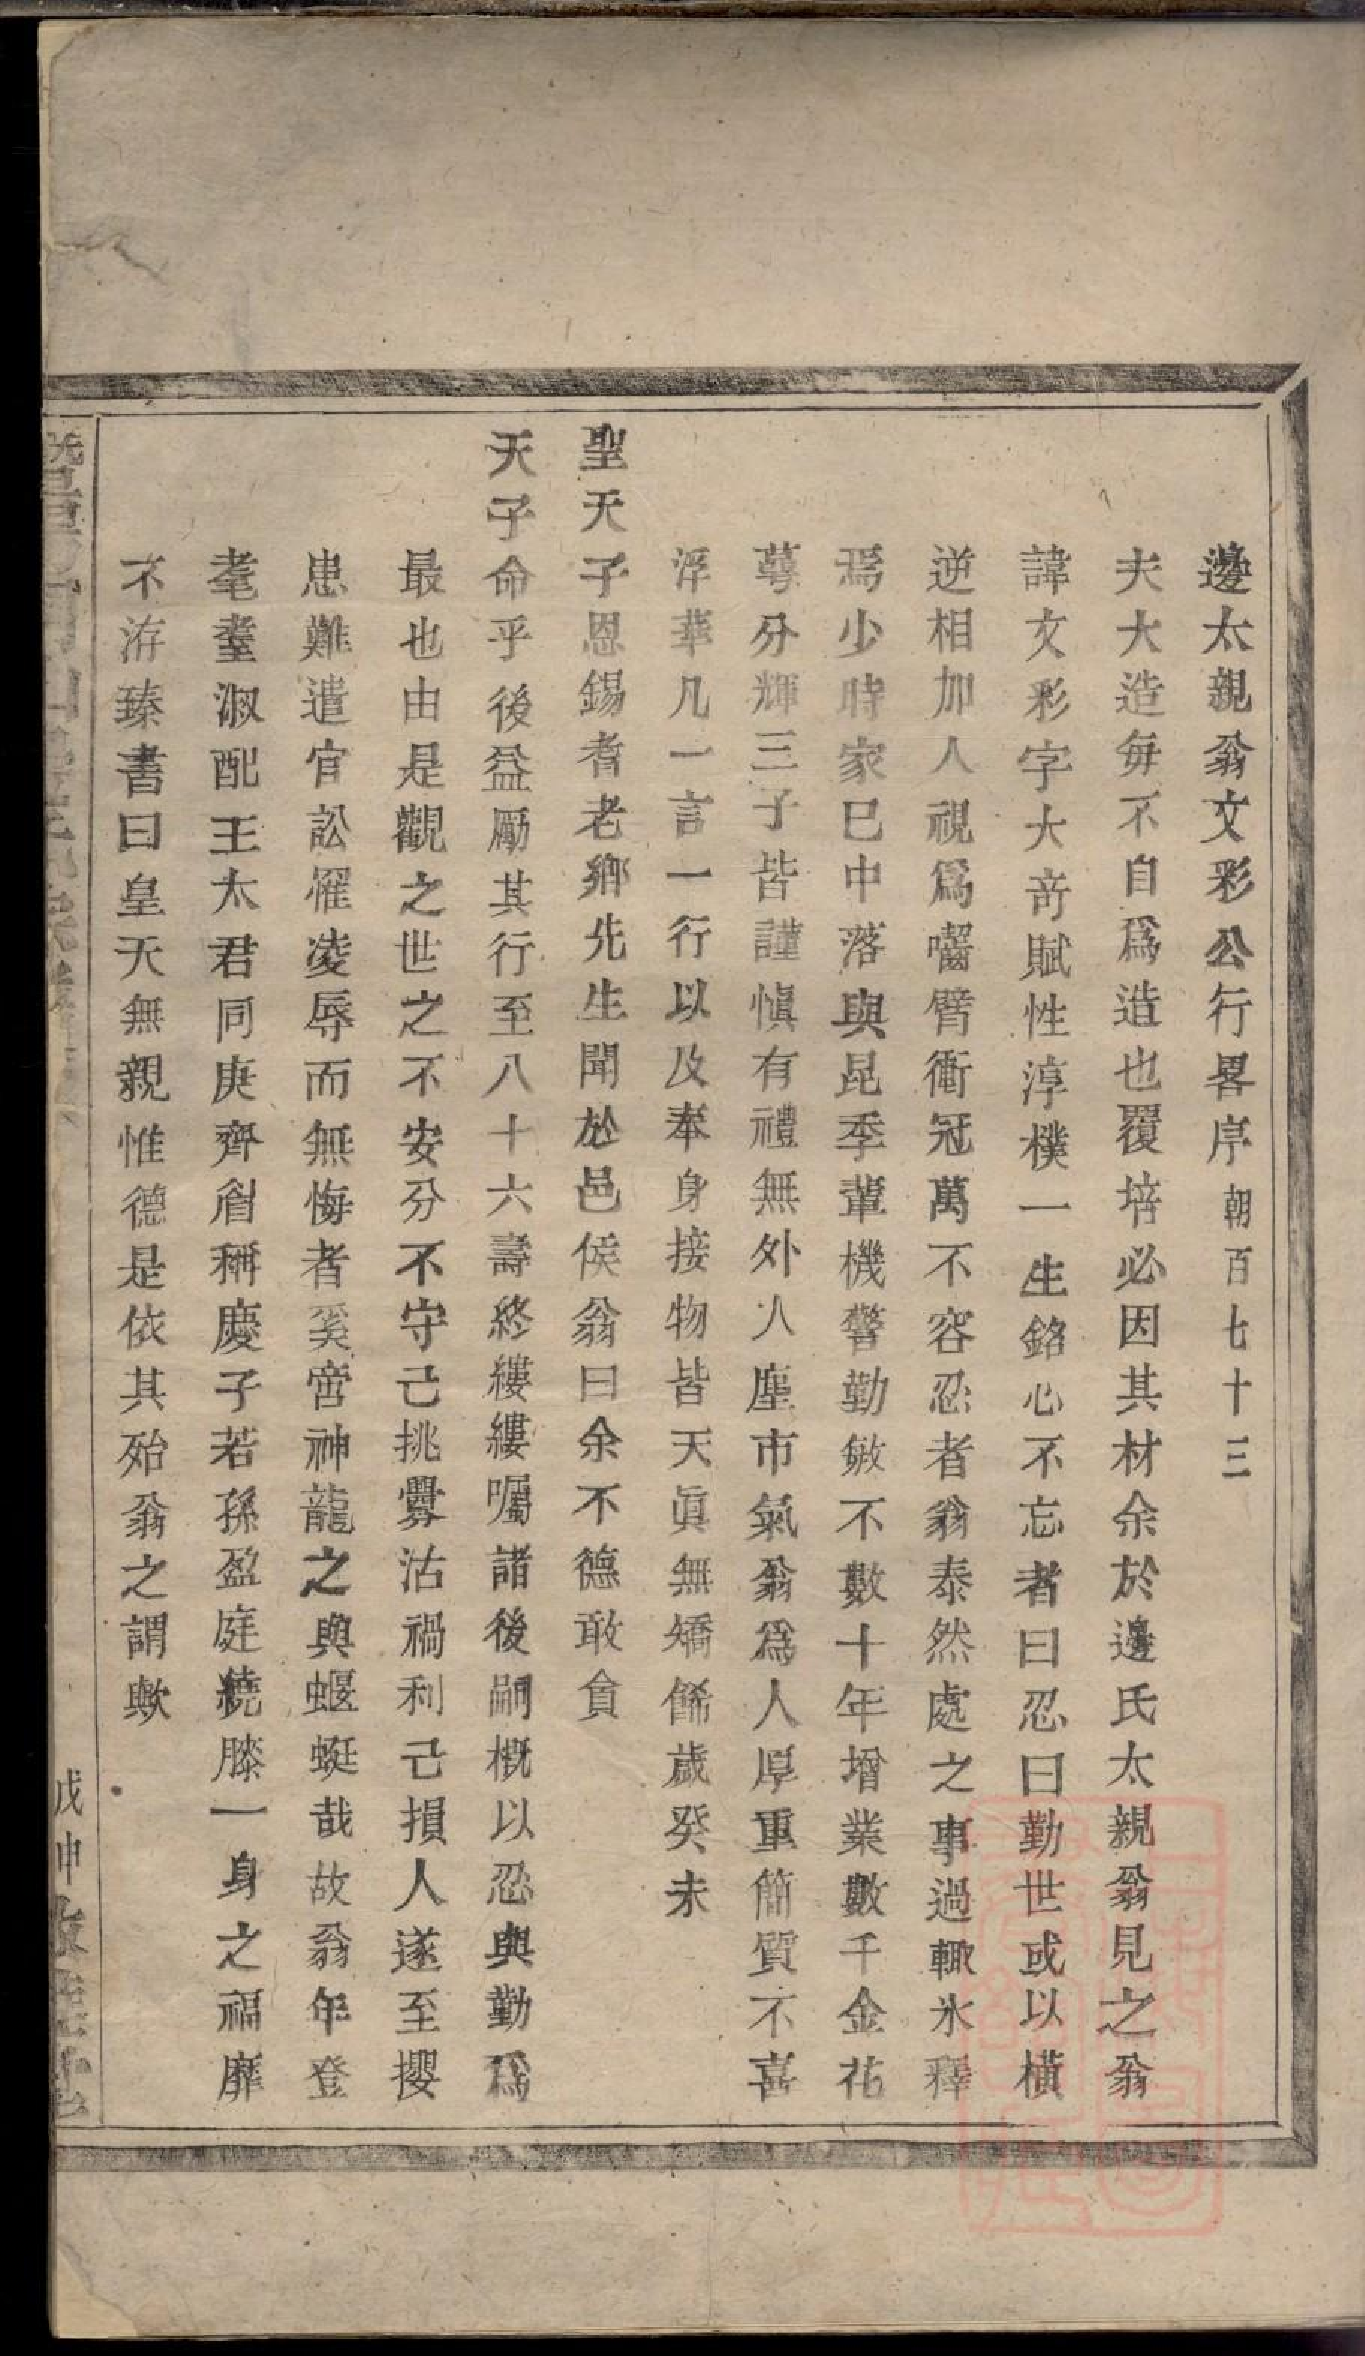 邊太親翁文彩公行畧序朝百七十三
夫大造每不自爲造也覆培必因其材余於邊氏太親翁見之翁
諱文彩字大奇賦性淳樸一生銘心不忘者曰忍曰勤世或以橫
逆相加人視爲嚙臂衝冠萬不容忍者翁泰然處之事過輒氷釋
焉少時家已中落與昆季輩機警勤敏不數十年增業數千金花
萼分輝三子皆謹愼有禮無外人塵市氣翁爲人厚重簡質不喜
浮華凡一言一行以及奉身接物皆天眞無矯餙歲癸未
聖天子恩錫耆老鄉先生聞於邑侯翁曰余不德敢貪
天子命乎後益勵其行至八十六壽終縷縷囑諸後嗣槪以忍與勤爲
最也由是觀之世之不安分不守己挑釁沽禍利己損人遂至攖
患難遣官訟罹凌辱而無悔者奚啻神龍之與蝘蜓哉故翁年登
耄耋淑配王太君同庚齊眉稱慶子若孫盈庭繞膝一身之福靡
不洊臻書曰皇天無親惟德是依其殆翁之謂歟
戊申